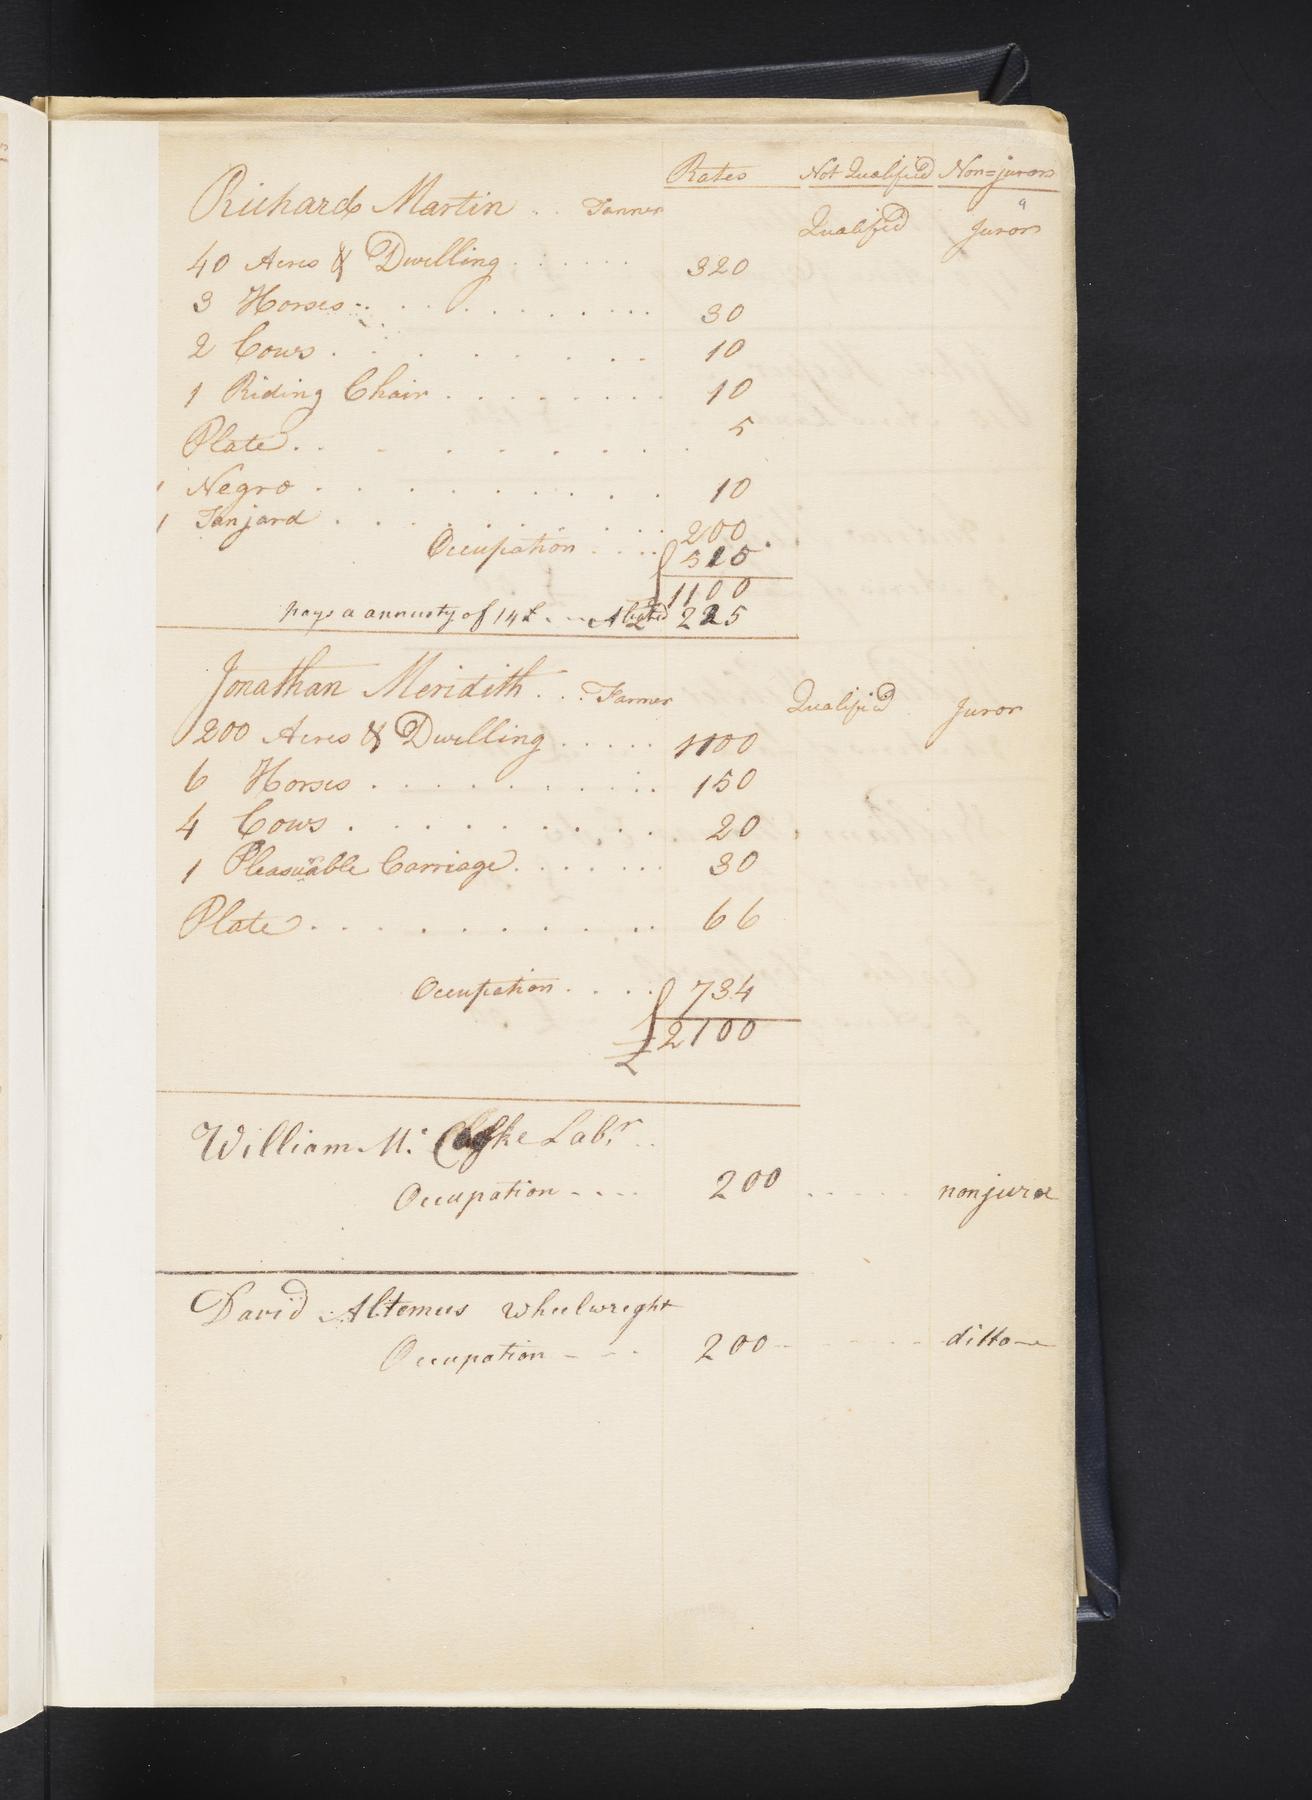 Rates Not Qualified Non=jurors
Richard Martin .. Tanner Qualified Juror
40 Acres & Dwelling ...... 320
3 Horses .......... 30
2 Cows ........ 10
1 Riding Chair ........ 10
Plate ....... 5
1 Negro ......... 10
1 Tanjard ........ 200
Occupation .... 515
1100
pays a annuity of 14£ ... 225
Jonathan Meridith ... Farmer Qualified Juror
200 Acres & Dwelling ..... 1100
6 Horses .......... 150
4 Cows ......... 20
1 Pleasuable Carriage ....... 30
Plate ......... 66
Occupation .... 734
£ 2100
William Mc Labr ..
Occupation .... 200 ..... nonjuror
David Altemus wheelwright
Occupation - - - 200 - - - - ditto